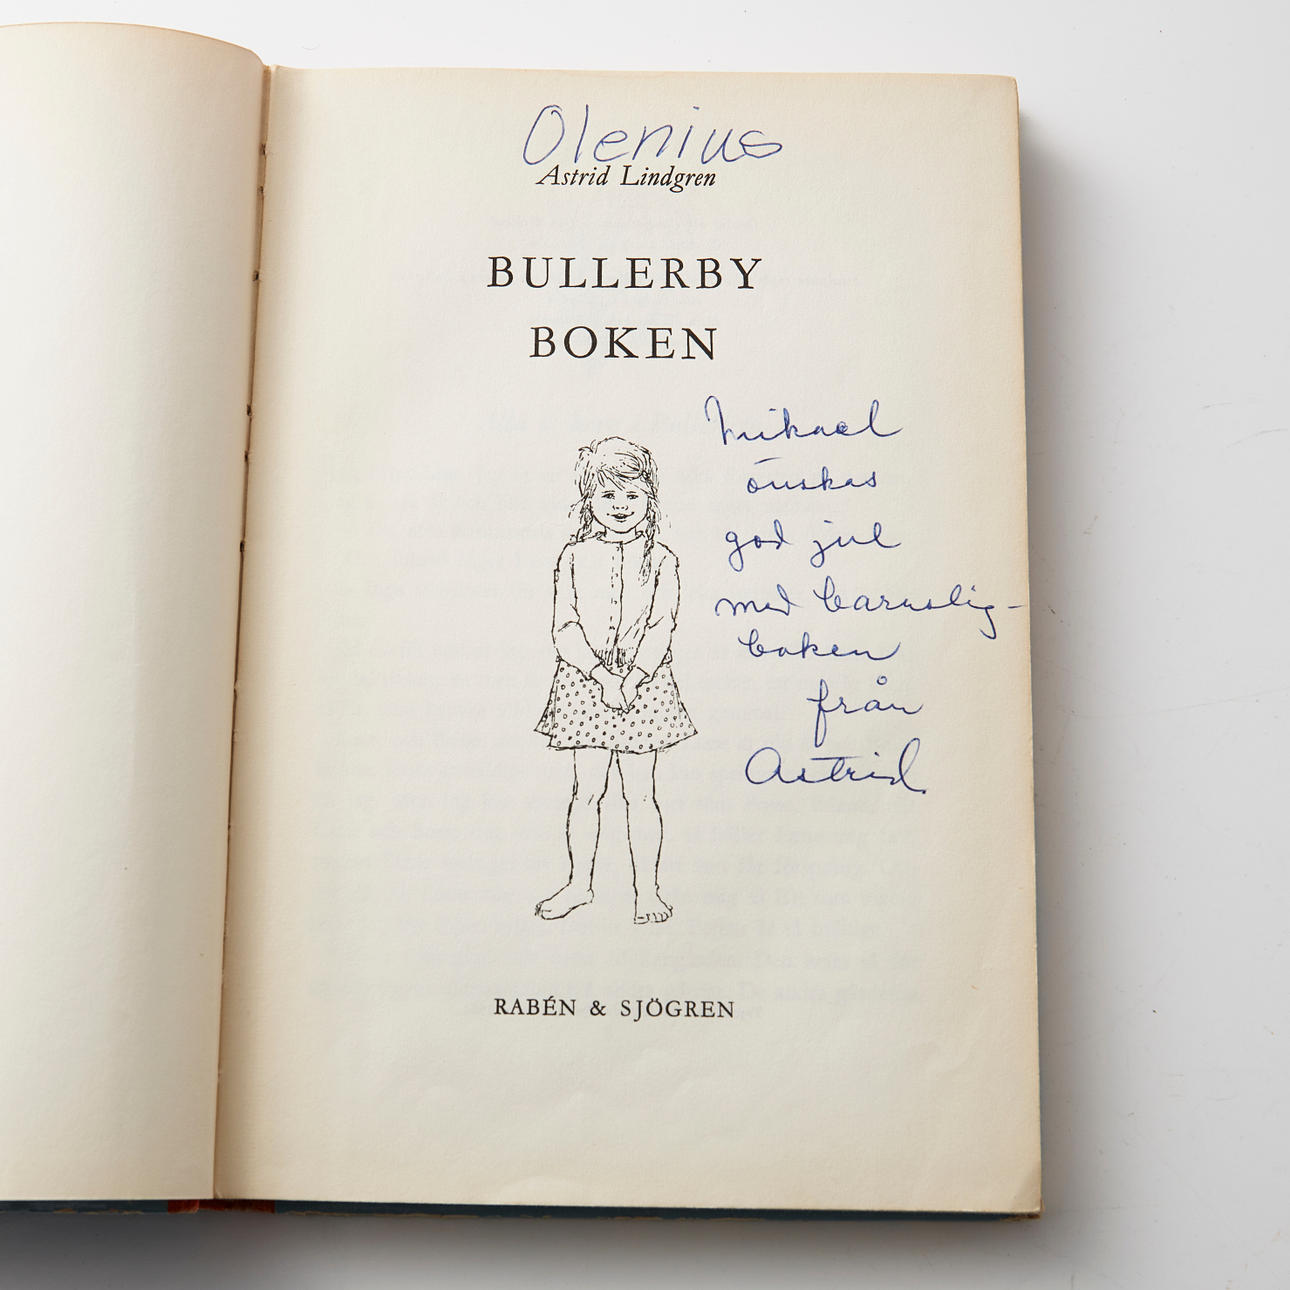 Olenius
Astrid Lindgren
BULLERBY
BOKEN
Mikael
önskas
god jul
med barnslig-
boken
från
Astrid
RABÉN & SJÖGREN